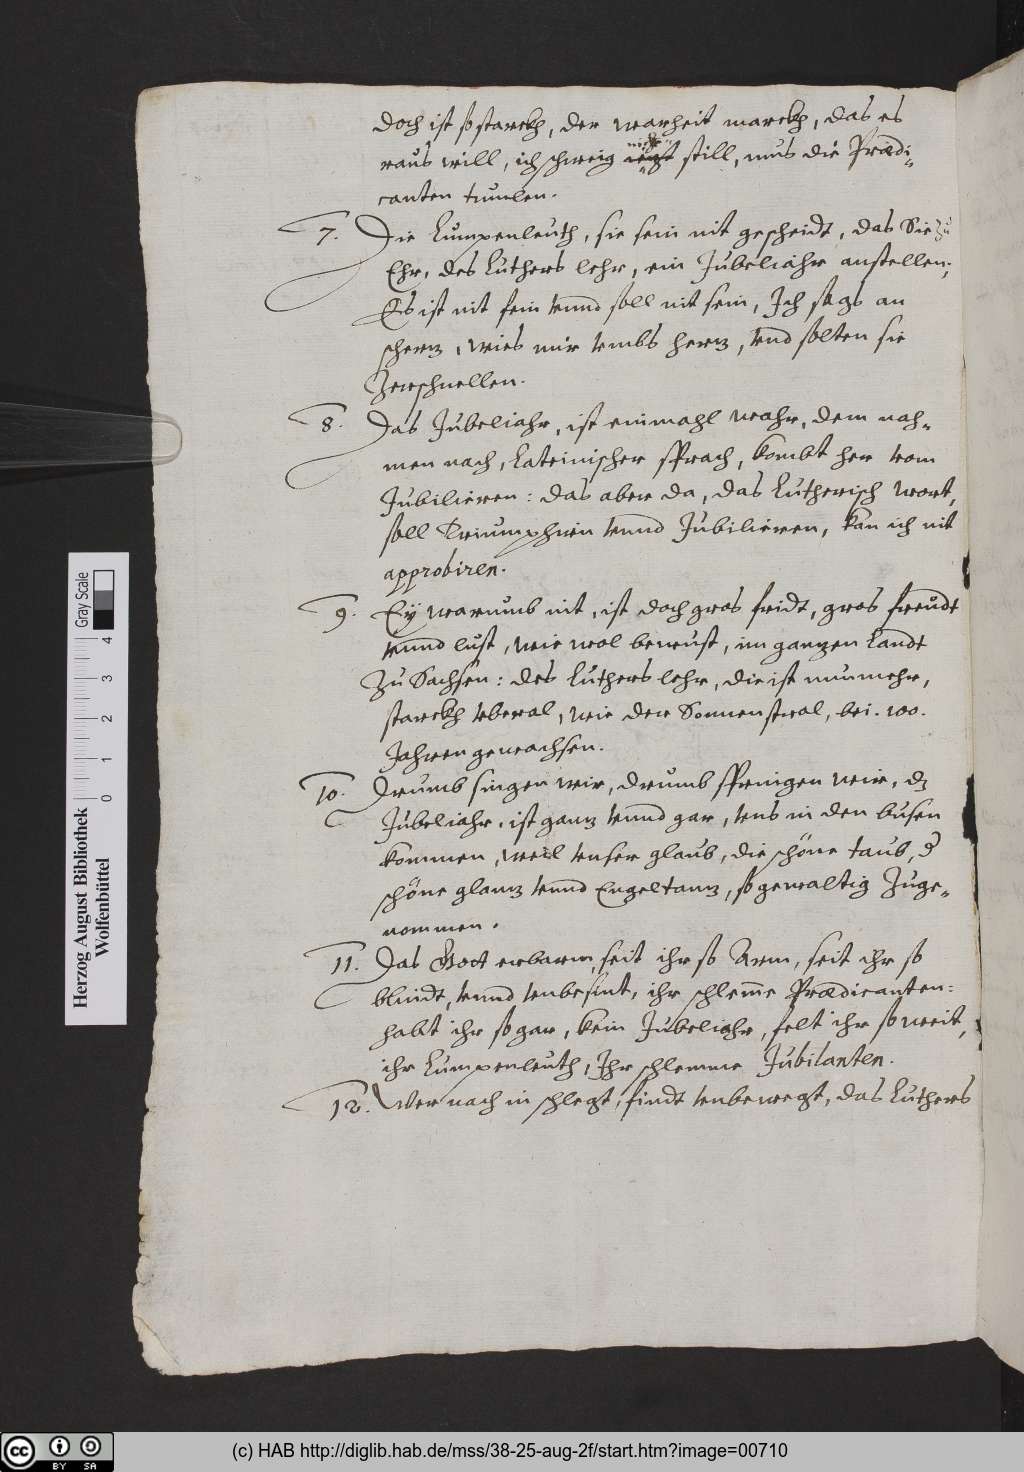 doch ist so starckh, der warheit marckh, das es
raus will, ich schweig nicht still, mus die Prædi-
canten tumlen.
7. Die Lumpenleuth, sie sein nit gescheidt, das Sie zu
Ehr, des Luthers lehr, ein Jubeliahr anstellen,
Es ist nit fein vnnd soll nit sein, Ich sags an
scherz, wies mir vmbs herz, vnd solten sie
Zerschnellen.
8. Das Jubeliahr, ist einmahl wahr, dem nah-
men nach, Lateinischer sprach, kombt her vom
Jubilieren: das aber da, das Lutherisch wort,
soll Triumphirn vnnd Jubilieren, kan ich nit
approbiren.
9. Eÿ warumb nit, ist doch gros fridt, gros freudt
vnnd lust, wie wol bewust, im ganzen Landt
Zu Sachsen: des Luthers lehr, die ist nunmehr,
starckh vberal, wie der Sonnenstral, bei .100.
Jahren gewachsen.
10. Drumb singen wir, drumb springen wir, dz
Jubeliahr, ist ganz vnnd gar, vns in den busen
kommen, weil vnser glaub, die schöne taub, d
schöne glanz vnnd Engeltanz, so gewaltig Zuge-
nommen.
11. Das Gott erbarm, seit ihr so Arm, seit ihr so
blindt, vnnd vnbesint, ihr schleme Prædicanten:
habt ihr so gar, kein Jubeliahr, felt ihr so weit,
ihr Lumpenleuth, Ihr schlemme Jubilanten.
12. Wer nach in schlegt, findt vnbewegt, das Luthers
Herzog August Bibliothek
Wolfenbüttel
0 1 2 3 4
Gray Scale
cc BY SA
(c) HAB http://diglib.hab.de/mss/38-25-aug-2f/start.htm?image=00710